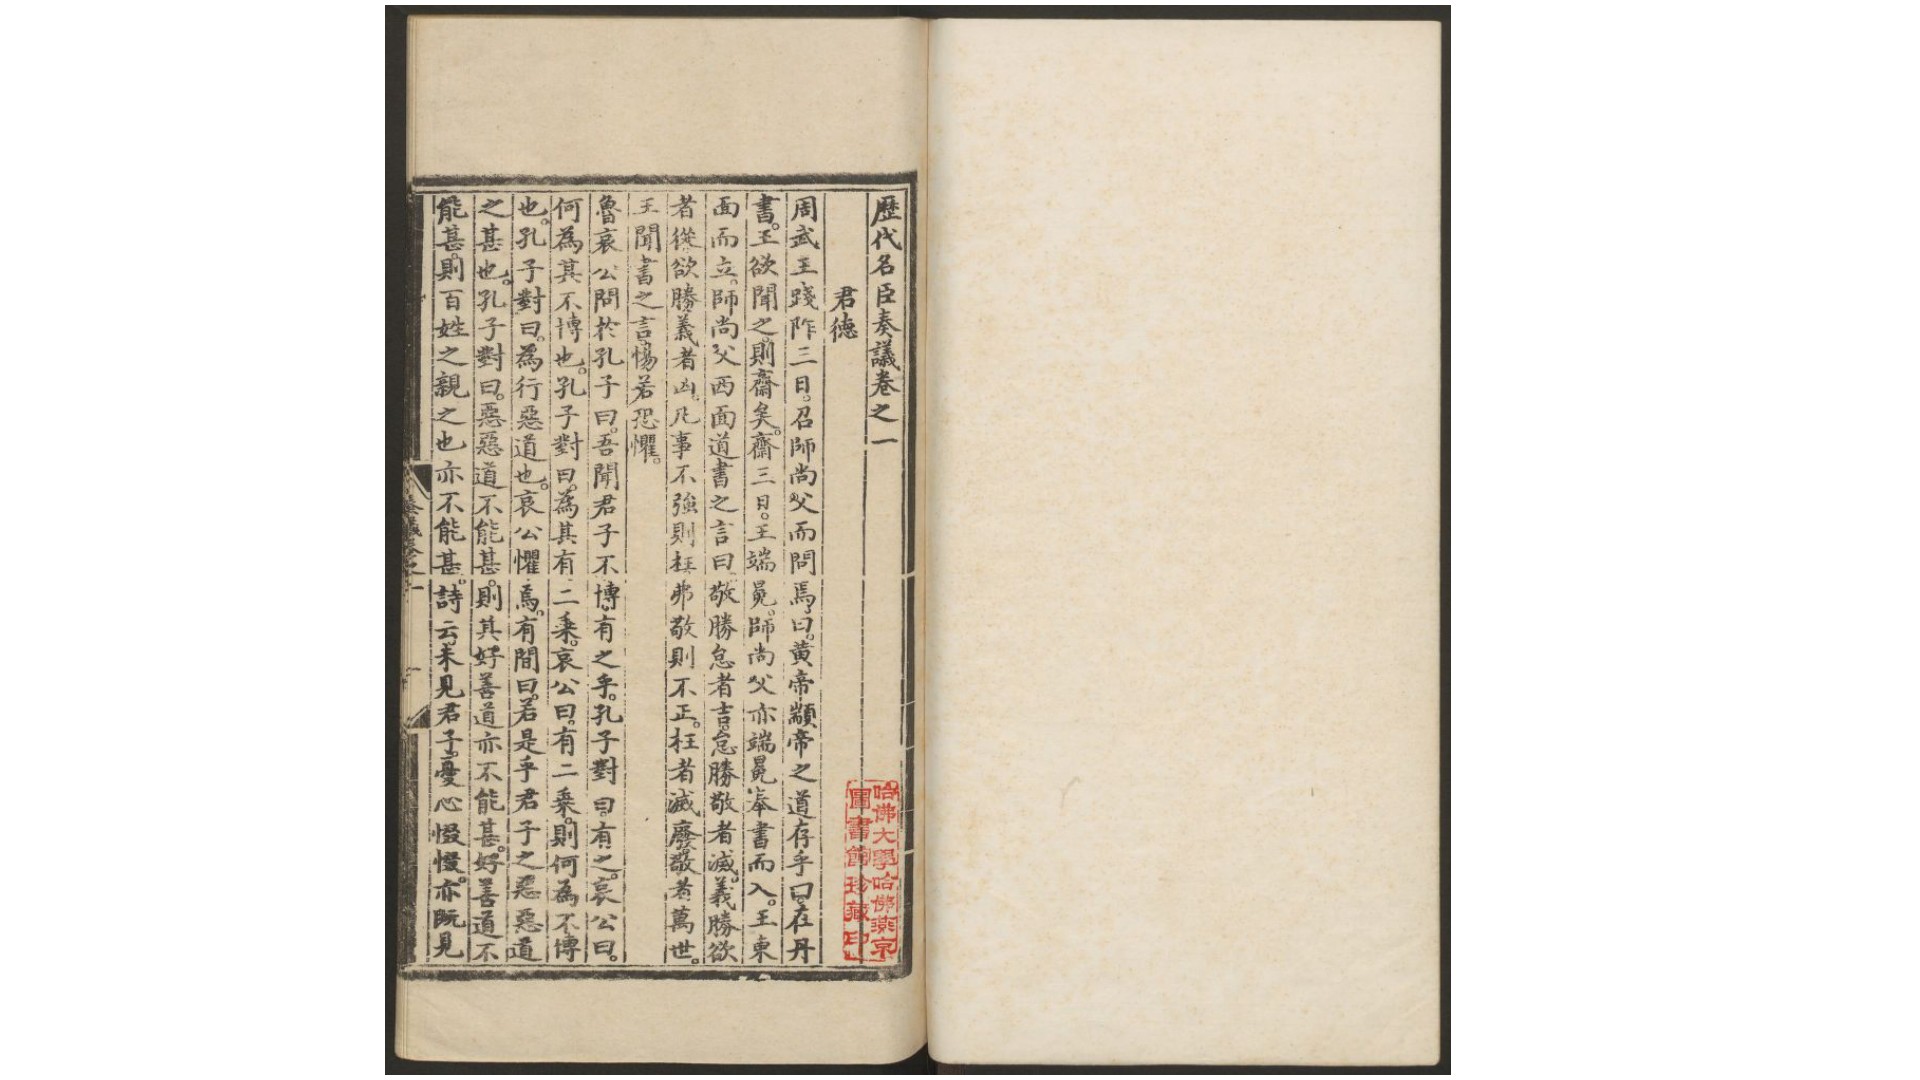 歷代名臣奏議卷之一
君德
周武王踐阼三日。召師尚父而問焉。曰。黄帝顓帝之道存乎。曰。在丹
書。王欲聞之。則齋矣。齋三日。王端冕。師尚父亦端冕。奉書而入。王東
面而立。師尚父西面道書之言曰。敬勝怠者吉。怠勝敬者滅。義勝欲
者從。欲勝義者凶。凡事不強則枉。弗敬則不正。枉者滅廢。敬者萬世。
王聞書之言。惕若恐懼。
魯哀公問於孔子曰。吾聞君子不博。有之乎。孔子對曰。有之。哀公曰。
何為其不博也。孔子對曰。為其有二乘。哀公曰。有二乘。則何為不博
也。孔子對曰。為行惡道也。哀公懼焉。有間曰。若是乎君子之惡惡道
之甚也。孔子對曰。惡惡道不能甚。則其好善道亦不能甚。好善道不
能甚。則百姓之親之也亦不能甚。詩云。未見君子。憂心惙惙。亦既見
奏議卷之一
一
哈佛大學哈佛燕京
圖書館珍藏印